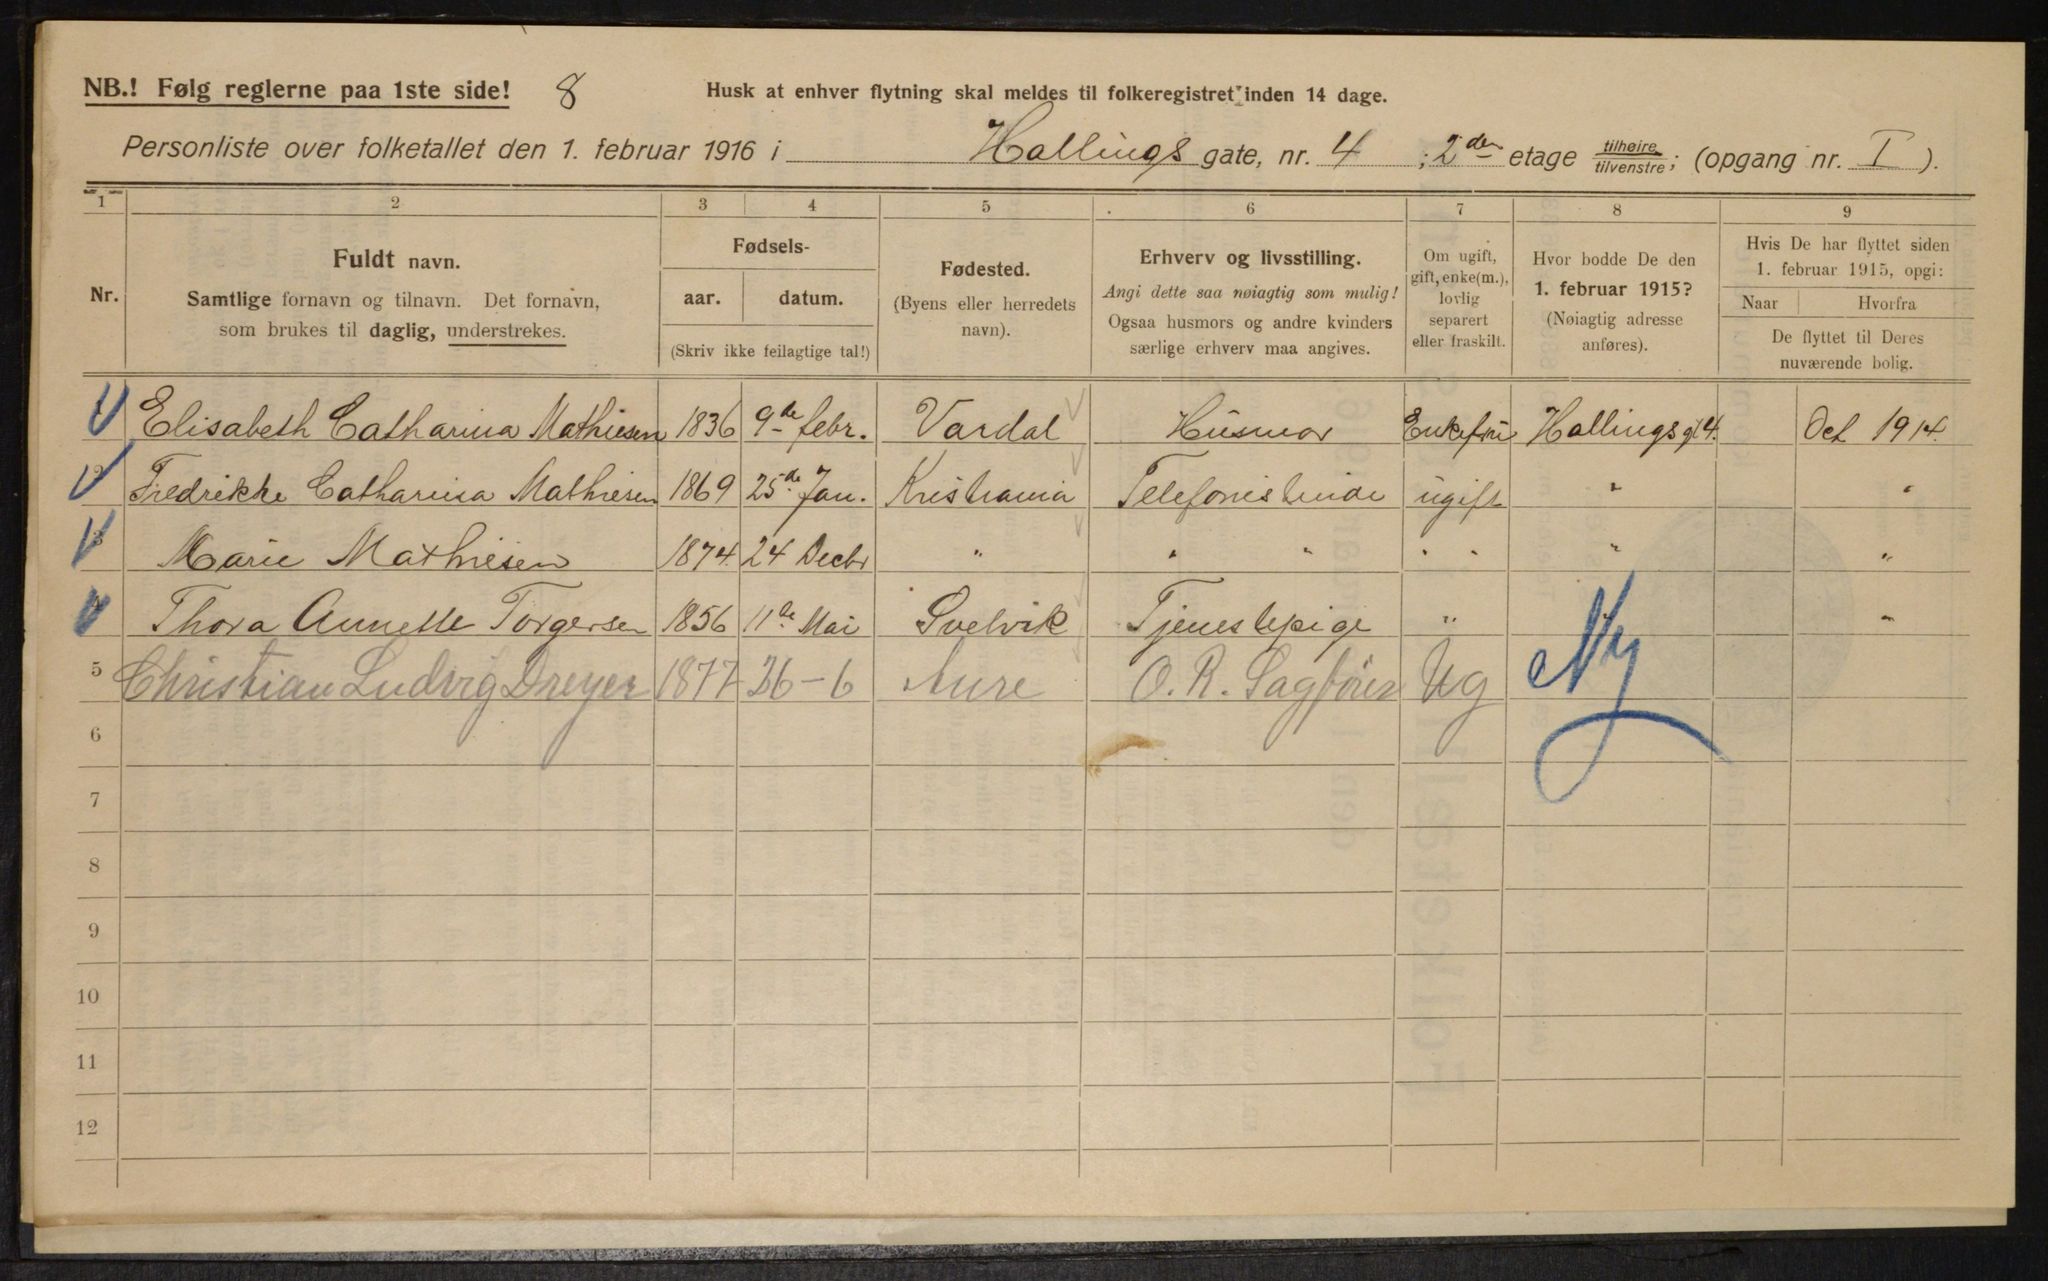 NB.! Følg reglerne paa 1ste side! 8 Husk at enhver flytning skal meldes til folkeregistret inden 14 dage.
Personliste over folketallet den 1. februar 1916 i Hallings gate, nr. 4 ; 2den etage tilhøire/tilvenstre; (opgang nr. I).
1 2 3 4 5 6 7 8 9
Nr.
Fuldt navn.
Samtlige fornavn og tilnavn. Det fornavn,
som brukes til daglig, understrekes.
Fødsels-
aar. datum.
(Skriv ikke feilagtige tal!)
Fødested.
(Byens eller herredets
navn).
Erhverv og livsstilling.
Angi dette saa nøiagtig som mulig!
Ogsaa husmors og andre kvinders
særlige erhverv maa angives.
Om ugift,
gift, enke(m.),
lovlig
separert
eller fraskilt.
Hvor bodde De den
1. februar 1915?
(Nøiagtig adresse
anføres).
Hvis De har flyttet siden
1. februar 1915, opgi:
Naar Hvorfra
De flyttet til Deres
nuværende bolig.
1 Elisabeth Catharina Mathiesen 1836 9de febr. Vardal Husmor Enkefru Hallings gt 4. Oct 1914.
2 Fredrikke Catharina Mathiesen 1869 25de Jan. Kristiania Telefonistinde ugift " "
3 Marie Mathiesen 1874. 24 Decbr " " " " " " "
4 Thora Annette Torgersen 1856 11de Mai Svelvik Tjenestepige " "
5 Christian Ludvig Dreyer 1877 26-6 Aure O.R. Sagfører Ug Ny
6
7
8
9
10
11
12